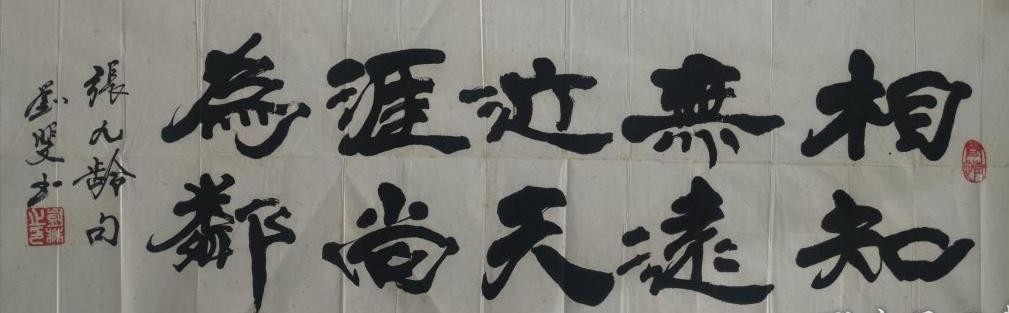 相知
無遠
近天
涯尚
為鄰
張九齡句
书